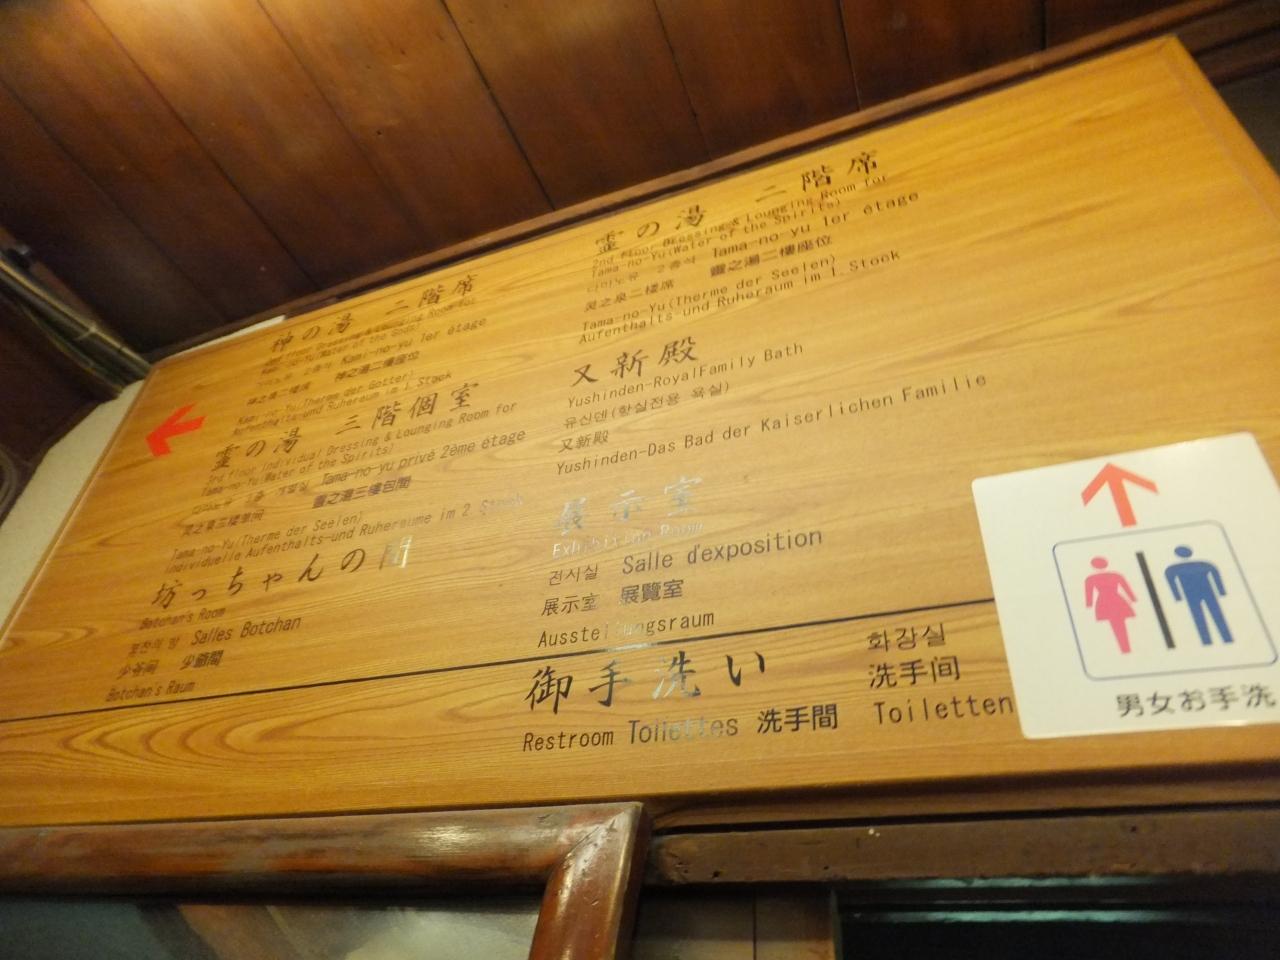 神の湯 二階席
2nd floor Dressing & Lounging Room for
Kami-no-Yu(Water of the Gods)
Kami-no-yu 1er étage
神之湯二樓座位
Kami-no-Yu(Therme der Götter)
Aufenthalts-und Ruheraum im 1. Stock
霊の湯 三階個室
3rd floor Individual Dressing & Lounging Room for
Tama-no-Yu(Water of the Spirits)
Tama-no-yu privé 2ème étage
灵之泉三楼单间 靈之湯三樓包間
Tama-no-Yu(Therme der Seelen)
Individuelle Aufenthalts-und Ruheraume im 2 Stock
坊っちゃんの間
Botchan's Room
Salles Botchan
少爷间 少爺間
Botchan's Raum
霊の湯 二階席
2nd floor Dressing & Lounging Room for
Tama-no-Yu(Water of the Spirits)
다마노유 2층석 Tama-no-yu 1er étage
灵之泉二楼席 靈之湯二樓座位
Tama-no-Yu(Therme der Seelen)
Aufenthalts-und Ruheraum im 1. Stock
又新殿
Yushinden-RoyalFamily Bath
유신덴(황실전용 욕실)
又新殿
Yushinden-Das Bad der Kaiserlichen Familie
展示室
Exhibition Room
전시실 Salle d'exposition
展示室 展覽室
Ausstellungsraum
御手洗い
화장실
洗手间
Restroom Toilettes 洗手間 Toiletten
男女お手洗